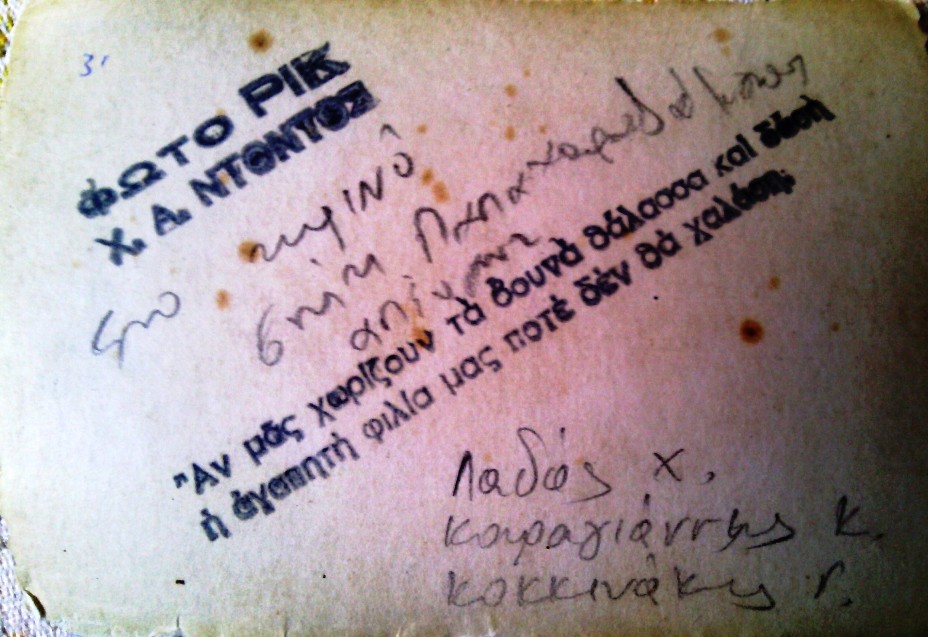 31
ΦΩΤΟ ΡΙΚ
Χ. Α. ΝΤΟΝΤΟΣ
Στο κυρινό
σπίτι
απέναντι
"Αν μᾶς χωρίζουν τὰ βουνὰ θάλασσα καὶ δάση
ἡ ἀγαπητή φιλία μας ποτέ δὲν θά χαλάση;
Λαδάς Χ.
Καραγιάννης Κ.
Κοκκινάκης Γ.